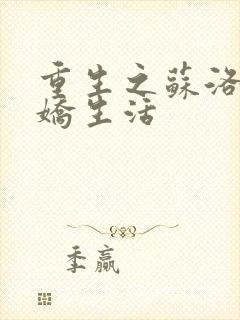 重生之蘇洛
嬌生活
季贏